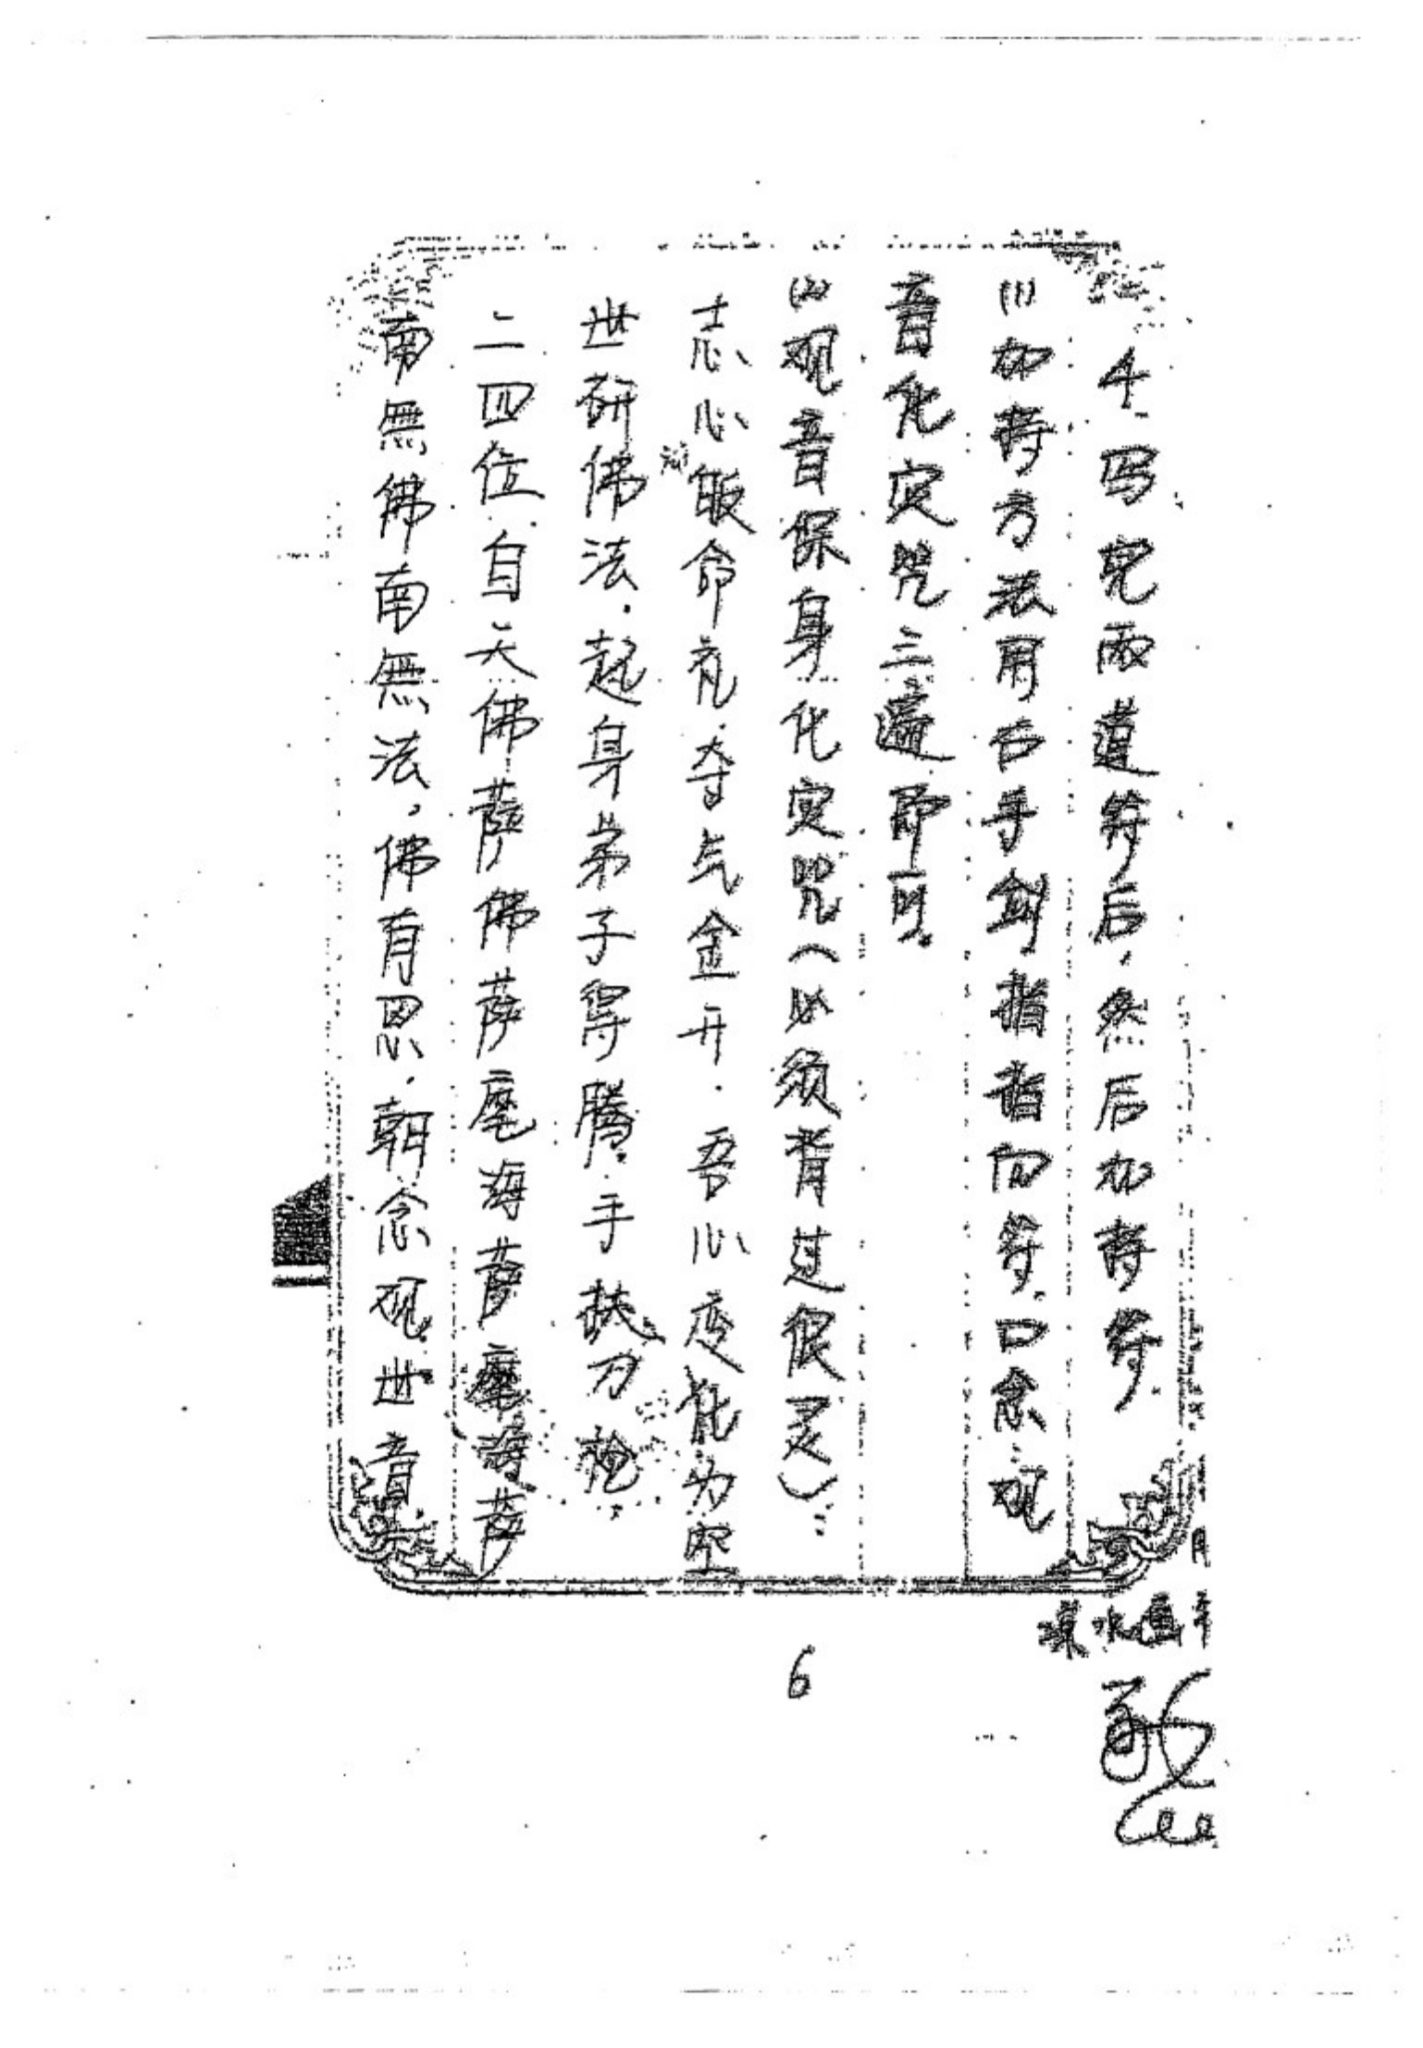 4.写完两道符后，然后加持符.
(1)加持方法用右手剑指指向符.口念观
音化定咒三遍即可.
(2)观音保身化定咒(必须背过很灵):
志心皈命礼.夺气金开.吾心变化为空
世研佛法.起身弟子得腾.手扶刀枪
二四位自天佛萨佛萨麾海萨摩海萨
南無佛南無法,佛有恩.朝念观世音.
6